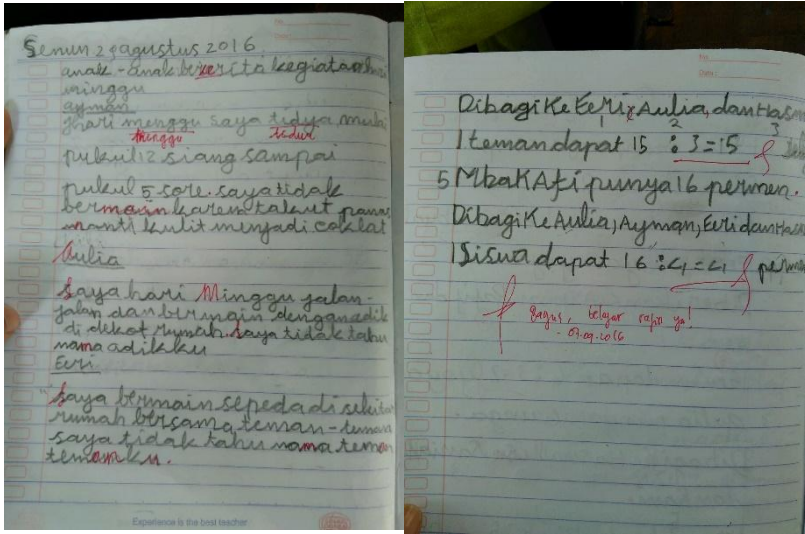 Senin 29 agustus 2016
anak-anak bercerita kegiatan hari
minggu
ayman
hari menggu saya tidya mulai
minggu tidur
pukul 12 siang sampai
pukul 5 sore. saya tidak
bermain karem takut panas
nanti kulit menjadi coklat
Aulia
saya hari Minggu jalan-
jalan dan bermain dengan adik
di dekat rumah. saya tidak tahu
nama adikku
Eeri
saya bermain sepeda di sekitar
rumah bersama teman-teman
saya tidak tahu nama teman
temanku.
Experience is the best teacher
Dibagi Ke Eeri, Aulia, dan Hasm
1 2 3
1 teman dapat 15 : 3 = 15
5 Mbak Afi punya 16 permen.
Dibagi Ke Aulia, Ayman, Eeri dan
1 Siswa dapat 16 : 4 = 4 perme
Bagus, belajar rapi ya!
03-09-2016